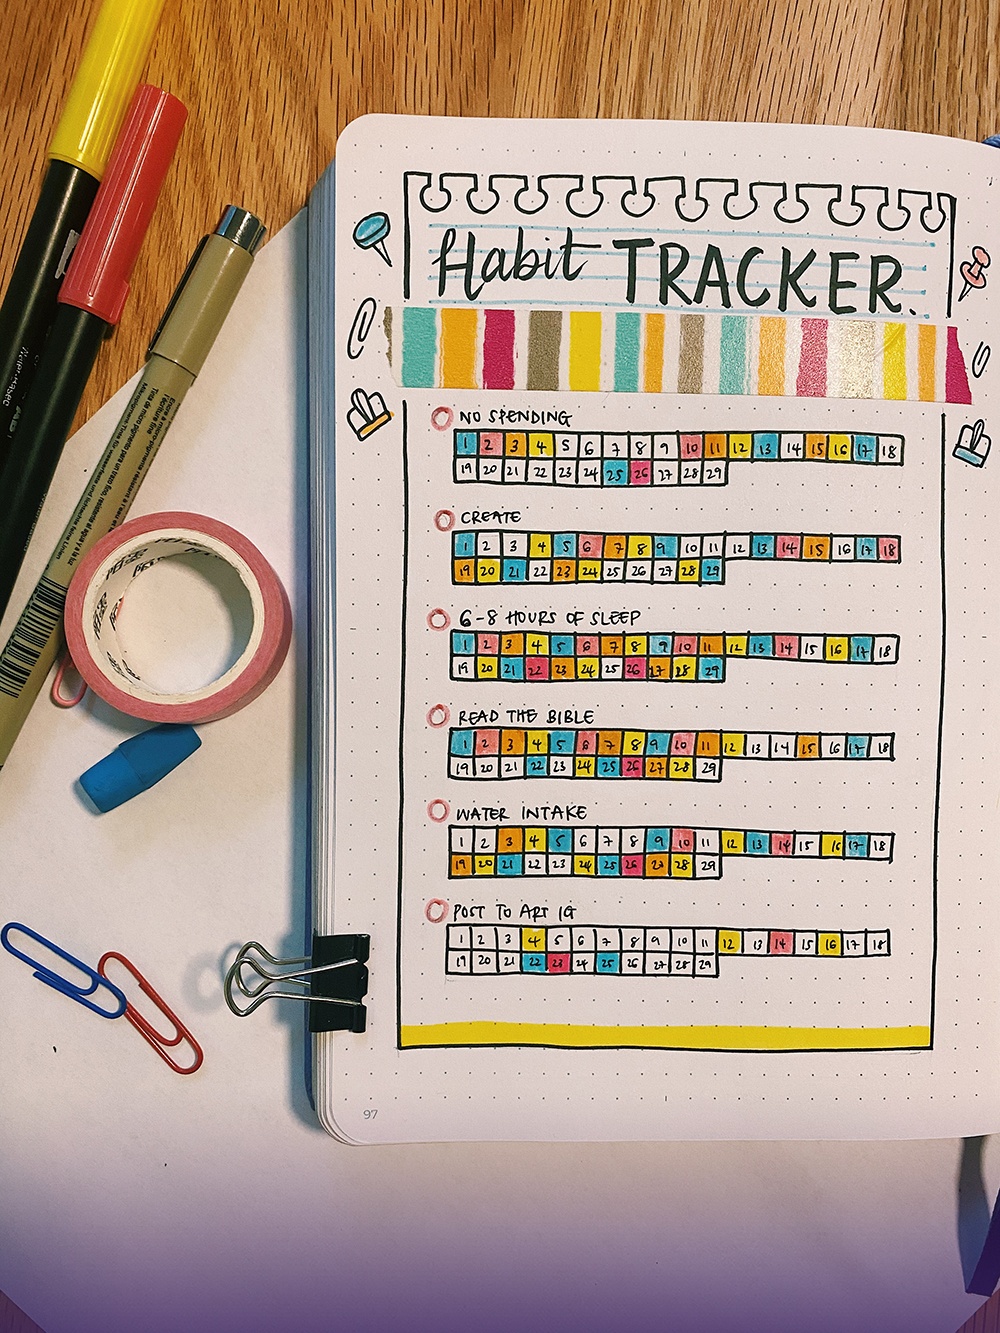 Habit TRACKER.
NO SPENDING
1 2 3 4 5 6 7 8 9 10 11 12 13 14 15 16 17 18
19 20 21 22 23 24 25 26 27 28 29
CREATE
1 2 3 4 5 6 7 8 9 10 11 12 13 14 15 16 17 18
19 20 21 22 23 24 25 26 27 28 29
6-8 HOURS OF SLEEP
1 2 3 4 5 6 7 8 9 10 11 12 13 14 15 16 17 18
19 20 21 22 23 24 25 26 27 28 29
READ THE BIBLE
1 2 3 4 5 6 7 8 9 10 11 12 13 14 15 16 17 18
19 20 21 22 23 24 25 26 27 28 29
WATER INTAKE
1 2 3 4 5 6 7 8 9 10 11 12 13 14 15 16 17 18
19 20 21 22 23 24 25 26 27 28 29
POST TO ART IG
1 2 3 4 5 6 7 8 9 10 11 12 13 14 15 16 17 18
19 20 21 22 23 24 25 26 27 28 29
97